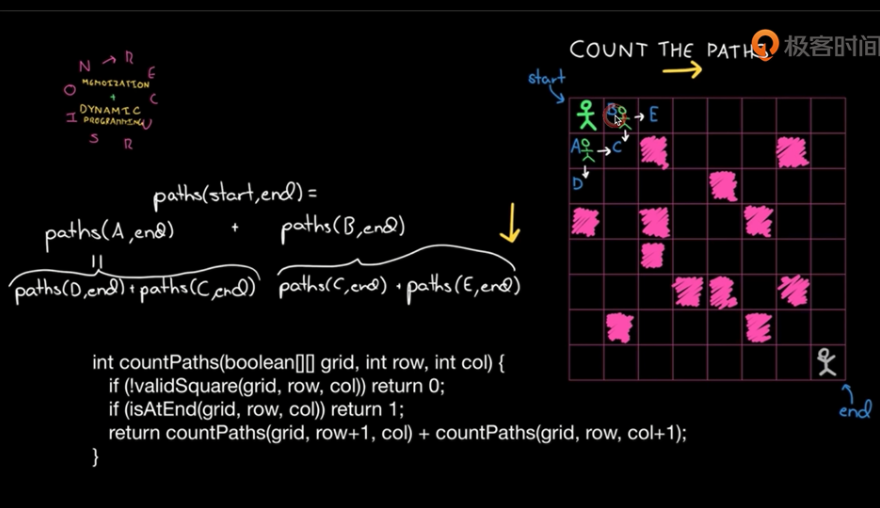 极客时间
COUNT THE PATHS
RECURSION
MEMOIZATION
+
DYNAMIC
PROGRAMMING
start
B E
A C
D
paths(start,end) =
paths(A,end) + paths(B,end)
=
paths(D,end)+paths(C,end) paths(C,end) + paths(E,end)
int countPaths(boolean[][] grid, int row, int col) {
if (!validSquare(grid, row, col)) return 0;
if (isAtEnd(grid, row, col)) return 1;
return countPaths(grid, row+1, col) + countPaths(grid, row, col+1);
}
end